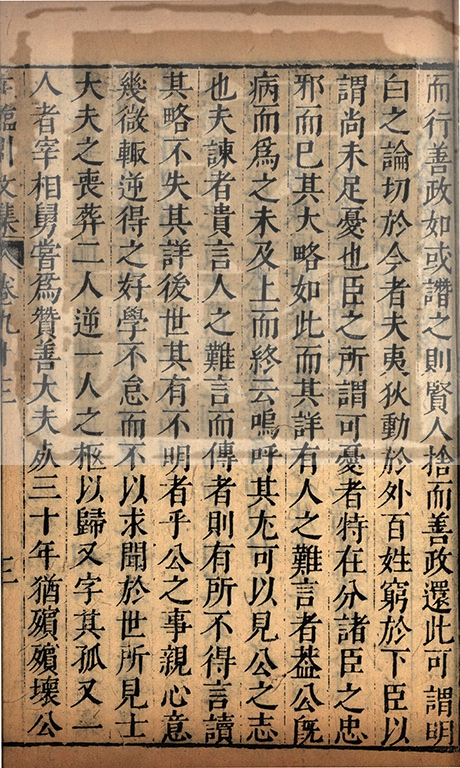 而行善政如或讚之則賢人捨而善政還此可謂明
白之論切於今者夫夷狄動於外百姓窮於下臣以
謂尚未足憂也臣之所謂可憂者特在分諸臣之忠
邪而已其大略如此而其詳有人之難言者葢公旣
病而爲之未及上而終云嗚呼其尢可以見公之志
也夫諫者貴言人之難言而傳者則有所不得言讀
其略不失其詳後世其有不明者乎公之事親心意
幾微輙逆得之好學不怠而不以求聞於世所見士
大夫之喪葬二人逆一人之柩以歸又字其孤又一
人者宰相舅嘗爲贊善大夫死三十年猶殯殯壞公
臨川文集 卷九十三 三